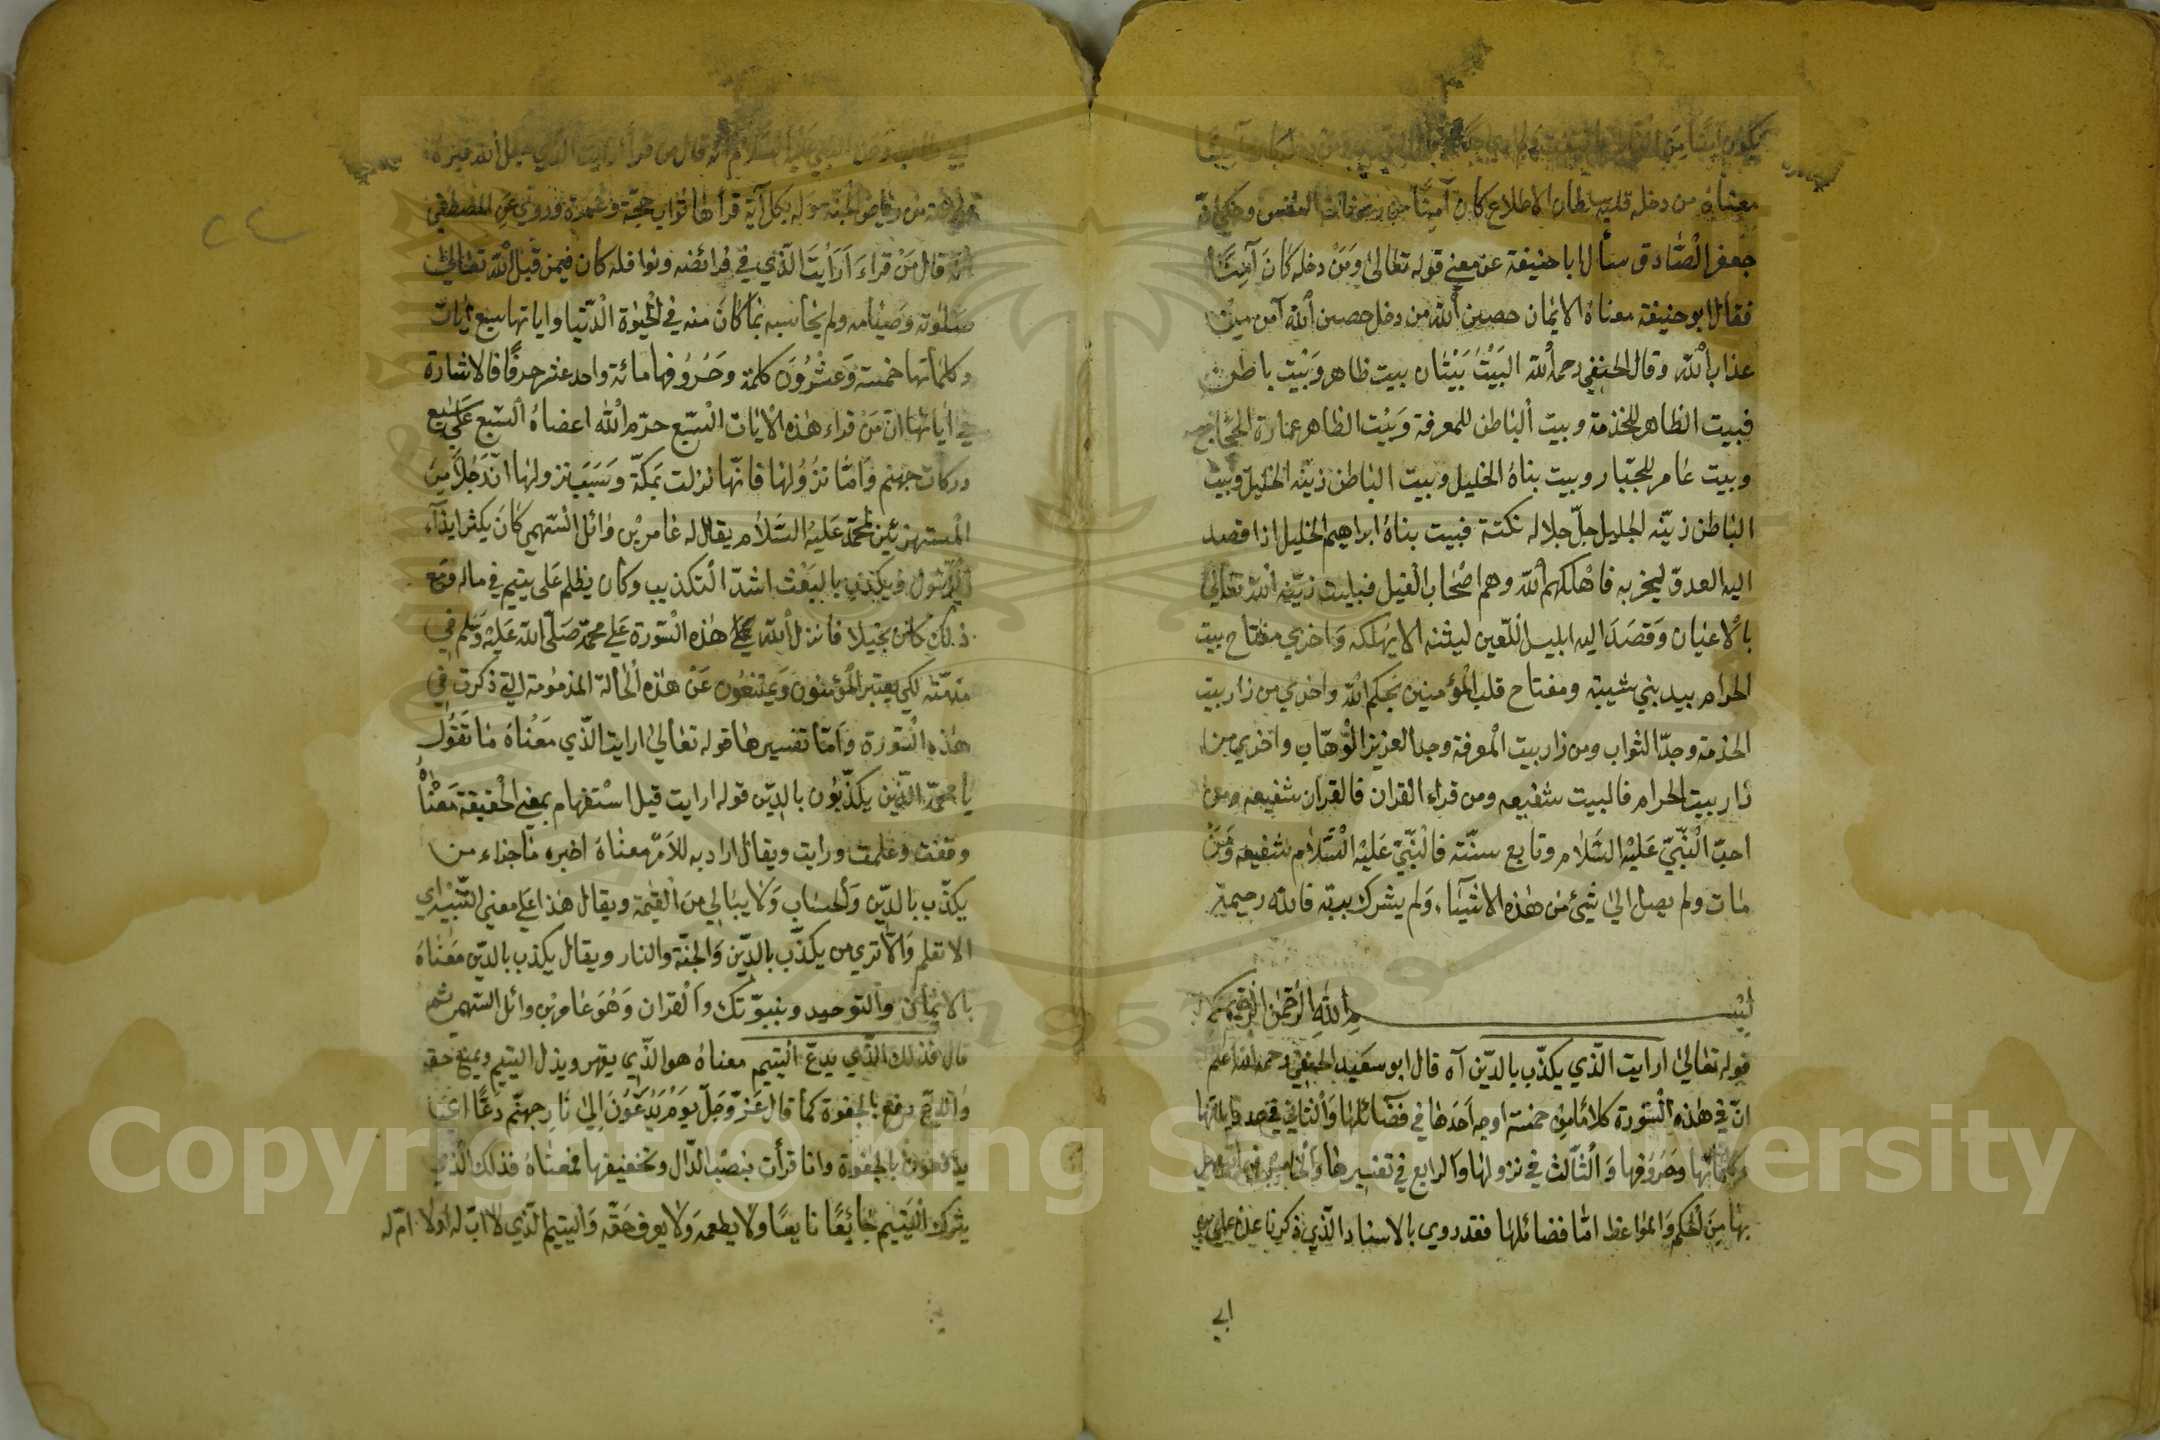 معناه من دخله قلبه سلطان الاطلاع كان آمنا من
جعفر الصّادق سأل ابا حنيفة عن معنى قوله تعالى ومن دخله كان آمنا
فقال ابو حنيفة معناه الايمان حصن الله من دخل حصن الله آمن من
عذاب الله وقال الحنفي رحمه الله البيت بيتان بيت ظاهر وبيت باطن
فبيت الظاهر للخدمة وبيت الباطن للمعرفة وبيت الظاهر عمارة الحجاج
وبيت عامر للجبّار وبيت بناه الخليل وبيت الباطن زيّنه الجليل وبيت
الباطن زيّنه الجليل جلّ جلاله نكتة فبيت بناه ابراهيم الخليل اذا قصد
اليه العدوّ ليخربه فاهلكهم الله وهم اصحاب الفيل فبيت زيّنه الله تعالى
بالاعيان وقصد اليه ابليس اللّعين الا يهلكه واخرى مفتاح بيت
الحرام بيد بني شيبة ومفتاح قلب المؤمنين بحكم الله واخرى من زار بيت
الخدمة وجد الثواب ومن زار بيت المعرفة وجد العزيز الوهّاب واخرى من
زار بيت الحرام فالبيت شفيعه ومن قراء القران فالقران شفيعه ومن
احبّ النّبيّ عليه السّلام وتابع سنّته فالنّبيّ عليه السّلام شفيعه ومن
مات ولم يصل الى شيئ من هذه الاشياء ولم يشرك بربّه فالله رحيمه
بسم الله الرّحمن الرّحيم
قوله تعالى ارايت الّذي يكذّب بالدّين آه قال ابو سعيد الحنفي رحمه الله اعلم
انّ في هذه السّورة كلاما من خمسة اوجه احدها في فضائلها والثاني في عدد اياتها
وكلماتها وحروفها والثّالث في نزولها والرابع في تفسيرها والخامس
بها من الحكم والمواعظ امّا فضائلها فقد روى بالاسناد الّذي ذكرنا عن على بن
ابي
ابي طالب عن النبي عليه السّلام انّه قال من قرأ ارايت الّذي جعل الله قبره
روضة من رياض الجنّة وله بكل آية قرأها ثواب حجّة وعمرة وروي عن المصطفى
انّه قال من قراء ارايت الّذي في فرائضه ونوافله كان فيمن قبل الله تعالى
صلوته وصيامه ولم يحاسبه بما كان منه في الحيوة الدّنيا واياتها سبع ايات
وكلماتها خمسة وعشرون كلمة وحروفها مائة واحد عشر حرفا فالاشارة
في اياتها انّ من قراء هذه الايات السّبع حرّم الله اعضاه السّبع على سبع
دركات جهنم وامّا نزولها فانّها نزلت بمكّة وسبب نزولها انّ رجلا من
المستهزئين لمحمّد عليه السّلام يقال له عامر بن وائل السّهمي كان يكثر ايذاء
الرّسول ويكذب بالبعث اشدّ التكذيب وكان يظلم على يتيم في ماله ومع
ذلك كان بخيلا فانزل الله هذه السّورة على محمّد صلّى الله عليه وسلم في
مذمّته لكي يعتبر المؤمنون ويمتنعون عن هذه الحالة المذمومة التي ذكرت في
هذه السّورة وامّا تفسيرها قوله تعالى ارايت الّذي معناه ما تقول
يا محمّد الّذين يكذّبون بالدين قوله ارايت قيل استفهام بمعنى الحقيقة معناه
وقفت وعلمت ورايت ويقال اراد به للامر معناه اخبره ما جزاء من
يكذّب بالدّين والحساب ولا يبالي من القيمة ويقال هذا على معنى التّنبيه اي
الا تعلم والا ترى من يكذّب بالدّين والجنّة والنار ويقال يكذب بالدّين معناه
بالايمان والتوحيد وبنبوّتك والقران وهو عامر بن وائل السّهمي ثم
قال فذلك الّذي يدعّ اليتيم معناه هو الّذي يقهر ويذل اليتيم ويمنع حقه
والدّع دفع بالجفوة كما قال عزّ وجلّ يوم يدعّون الى نار جهنّم دعّا اى
يدفعون بالجفوة وانا قرأت بنصب الدّال وتخفيفها فمعناه فذلك الّذي
يترك اليتيم جائعا نايعا ولا يطعمه ولا يوفى حقّه واليتيم الّذي لا اب له اولا امّ له
Copyright © King Saud University